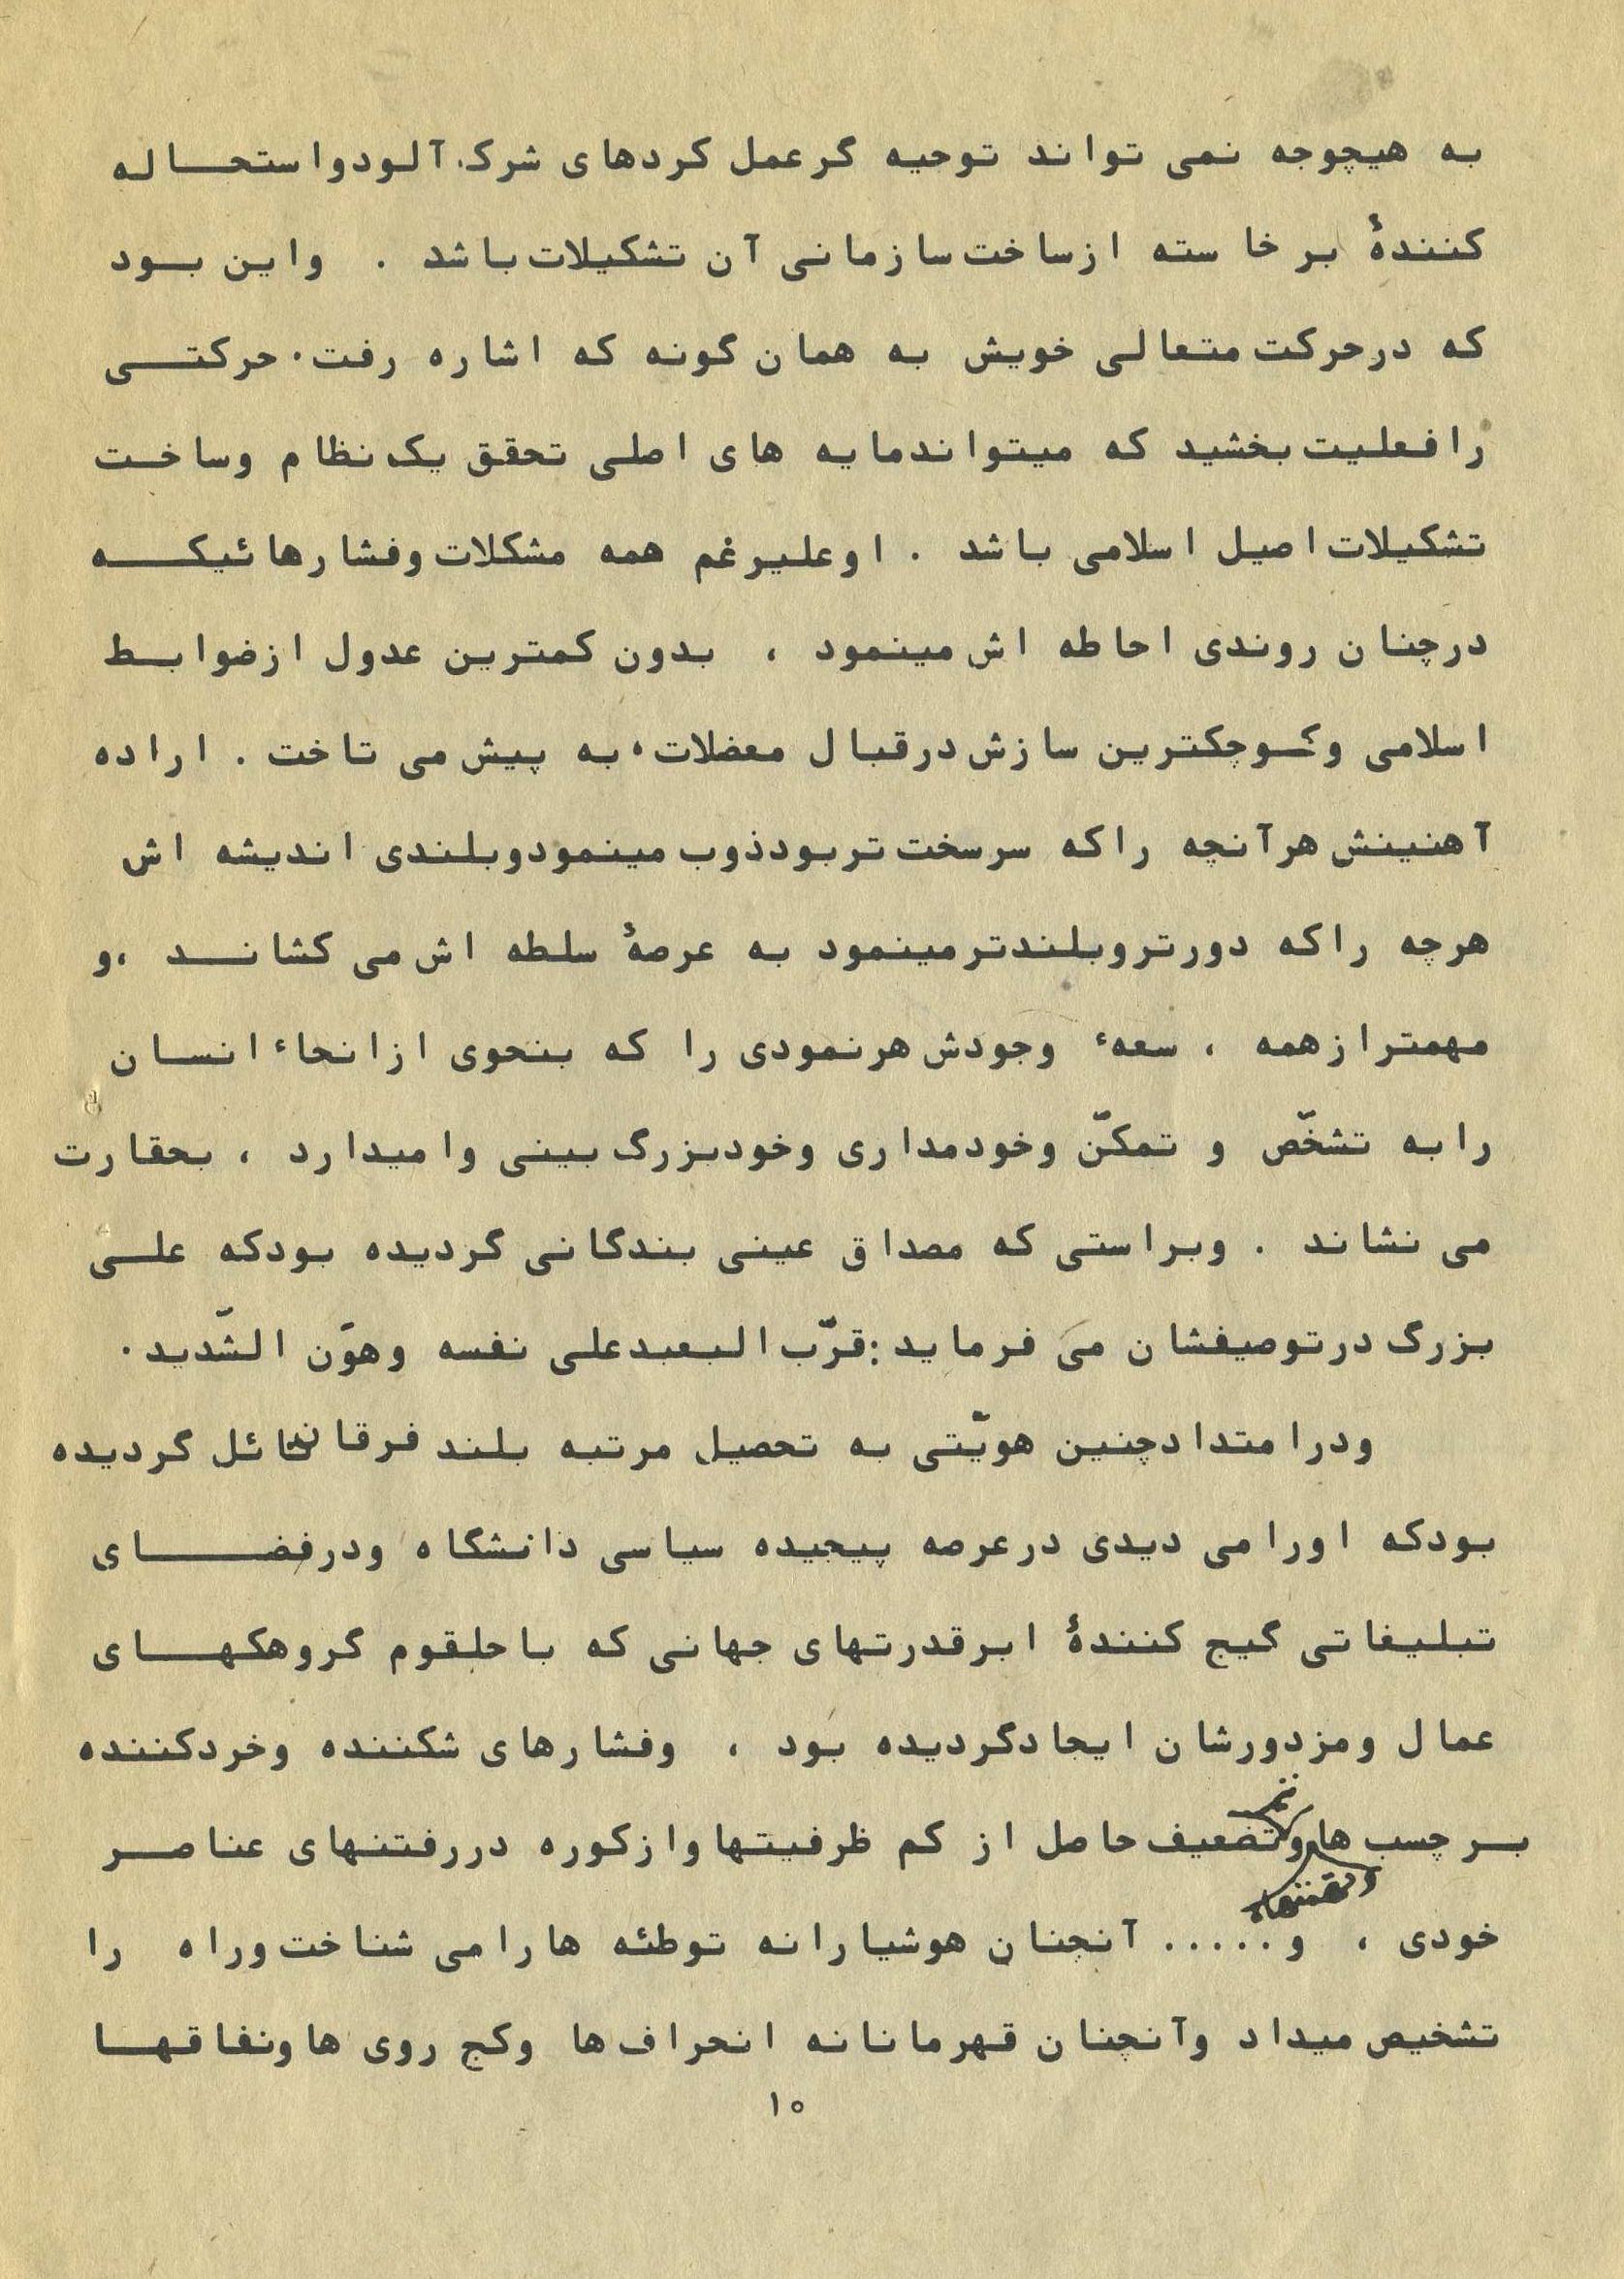 به هیچوجه نمی تواند توجیه گر عمل کردهای شرک آلود واستحاله
کنندهٔ برخاسته ازساخت سازمانی آن تشکیلات باشد . واین بود
که درحرکت متعالی خویش به همان گونه که اشاره رفت، حرکتی
را فعلیت بخشید که میتواندمایه های اصلی تحقق یک نظام وساخت
تشکیلات اصیل اسلامی باشد . اوعلیرغم همه مشکلات وفشارهائیکه
درچنان روندی احاطه اش مینمود ، بدون کمترین عدول ازضوابط
اسلامی وکوچکترین سازش درقبال معضلات، به پیش می تاخت . اراده
آهنینش هرآنچه راکه سرسخت تربودذوب مینمودوبلندی اندیشه اش
هرچه راکه دورتروبلندترمینمود به عرصهٔ سلطه اش می کشاند ،و
مهمترازهمه ، سعهٔ وجودش هرنمودی را که بنحوی ازانحاء انسان
رابه تشخّص و تمکّن وخودمداری وخودبزرگ بینی وامیدارد ، بحقارت
می نشاند . وبراستی که مصداق عینی بندگانی گردیده بودکه علی
بزرگ درتوصیفشان می فرماید: قرّب البعیدعلی نفسه وهوّن الشّدید.
ودرامتدادچنین هویّتی به تحصیل مرتبه بلند فرقان نائل گردیده
بودکه اورامی دیدی درعرصه پیچیده سیاسی دانشگاه ودرفضای
تبلیغاتی گیج کنندهٔ ابرقدرتهای جهانی که باحلقوم گروهکهای
عمال ومزدورشان ایجادگردیده بود ، وفشارهای شکننده وخردکننده
برچسب ها وتضعیف حاصل از کم ظرفیتها وازکوره دررفتنهای عناصر
خودی ، و..... آنچنان هوشیارانه توطئه هارامی شناخت وراه را
تشخیص میداد وآنچنان قهرمانانه انحراف ها وکج روی ها ونفاقها
۱۰